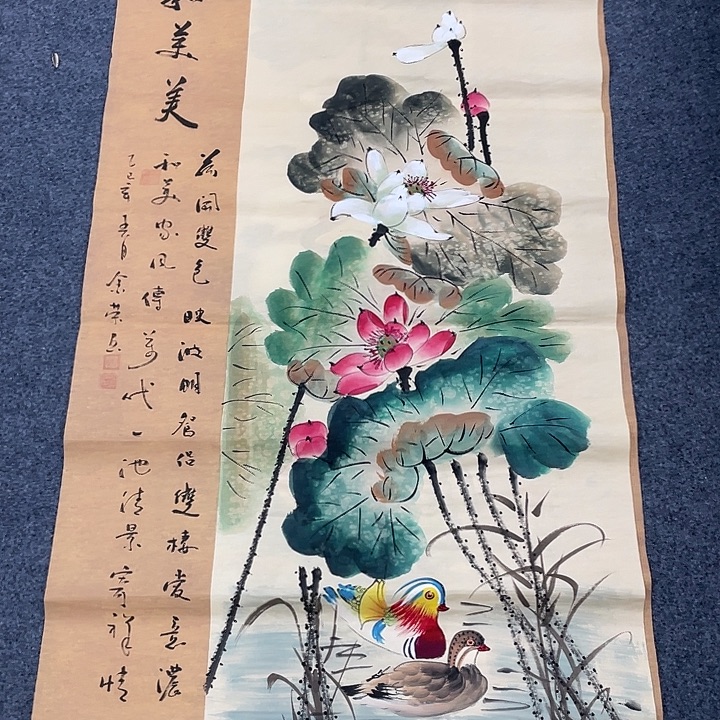 和美美
荷開雙色映波明鴛侶雙棲愛意濃
和美家風傳萬代一池清景寄祥情
乙巳年五月余榮